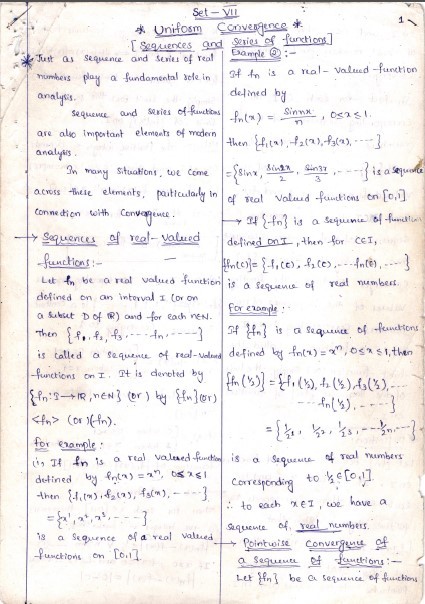 Set - VII
1
* Uniform Convergence *
[Sequences and Series of functions]
* Just as sequence and series of real
numbers play a fundamental role in
analysis.
Sequence and series of functions
are also important elements of modern
analysis.
In many situations, we come
across these elements, particularly in
connection with convergence.
→ Sequences of real-valued
functions:-
Let fn be a real valued function
defined on an interval I (or on
a subset D of ℝ) and for each n∈N.
Then {f₁, f₂, f₃, --- fn, -----}
is called a sequence of real-valued
functions on I. It is denoted by
{fn: I→ℝ, n∈N} (or) by {fn} (or)
<fn> (or) (fn).
for example:
(i) If fn is a real valued function
defined by fn(x) = xⁿ, 0≤x≤1
then {f₁(x), f₂(x), f₃(x), ----- }
= {x¹, x², x³, ----- }
is a sequence of a real valued
functions on [0,1].
Example ②:-
If fn is a real-valued function
defined by
fn(x) = sin nx / n, 0≤x≤1.
then {f₁(x), f₂(x), f₃(x), ---- }
= {sinx, sin2x/2, sin3x/3, ----- } is a sequence
of real valued functions on [0,1]
→ If {fn} is a sequence of function
defined on I, then for c∈I,
{fn(c)} = {f₁(c), f₂(c), ---fn(c), ---- }
is a sequence of real numbers.
For example:
If {fn} is a sequence of functions
defined by fn(x) = xⁿ, 0≤x≤1, then
{fn(½)} = {f₁(½), f₂(½), f₃(½), ---
---fn(½), ----- }
= {1/2¹, 1/2², 1/2³, ---1/2ⁿ, --- }
is a sequence of real numbers
corresponding to ½∈[0,1].
∴ to each x∈I, we have a
sequence of real numbers.
→ Pointwise Convergence of
a Sequence of functions:-
Let {fn} be a sequence of functions